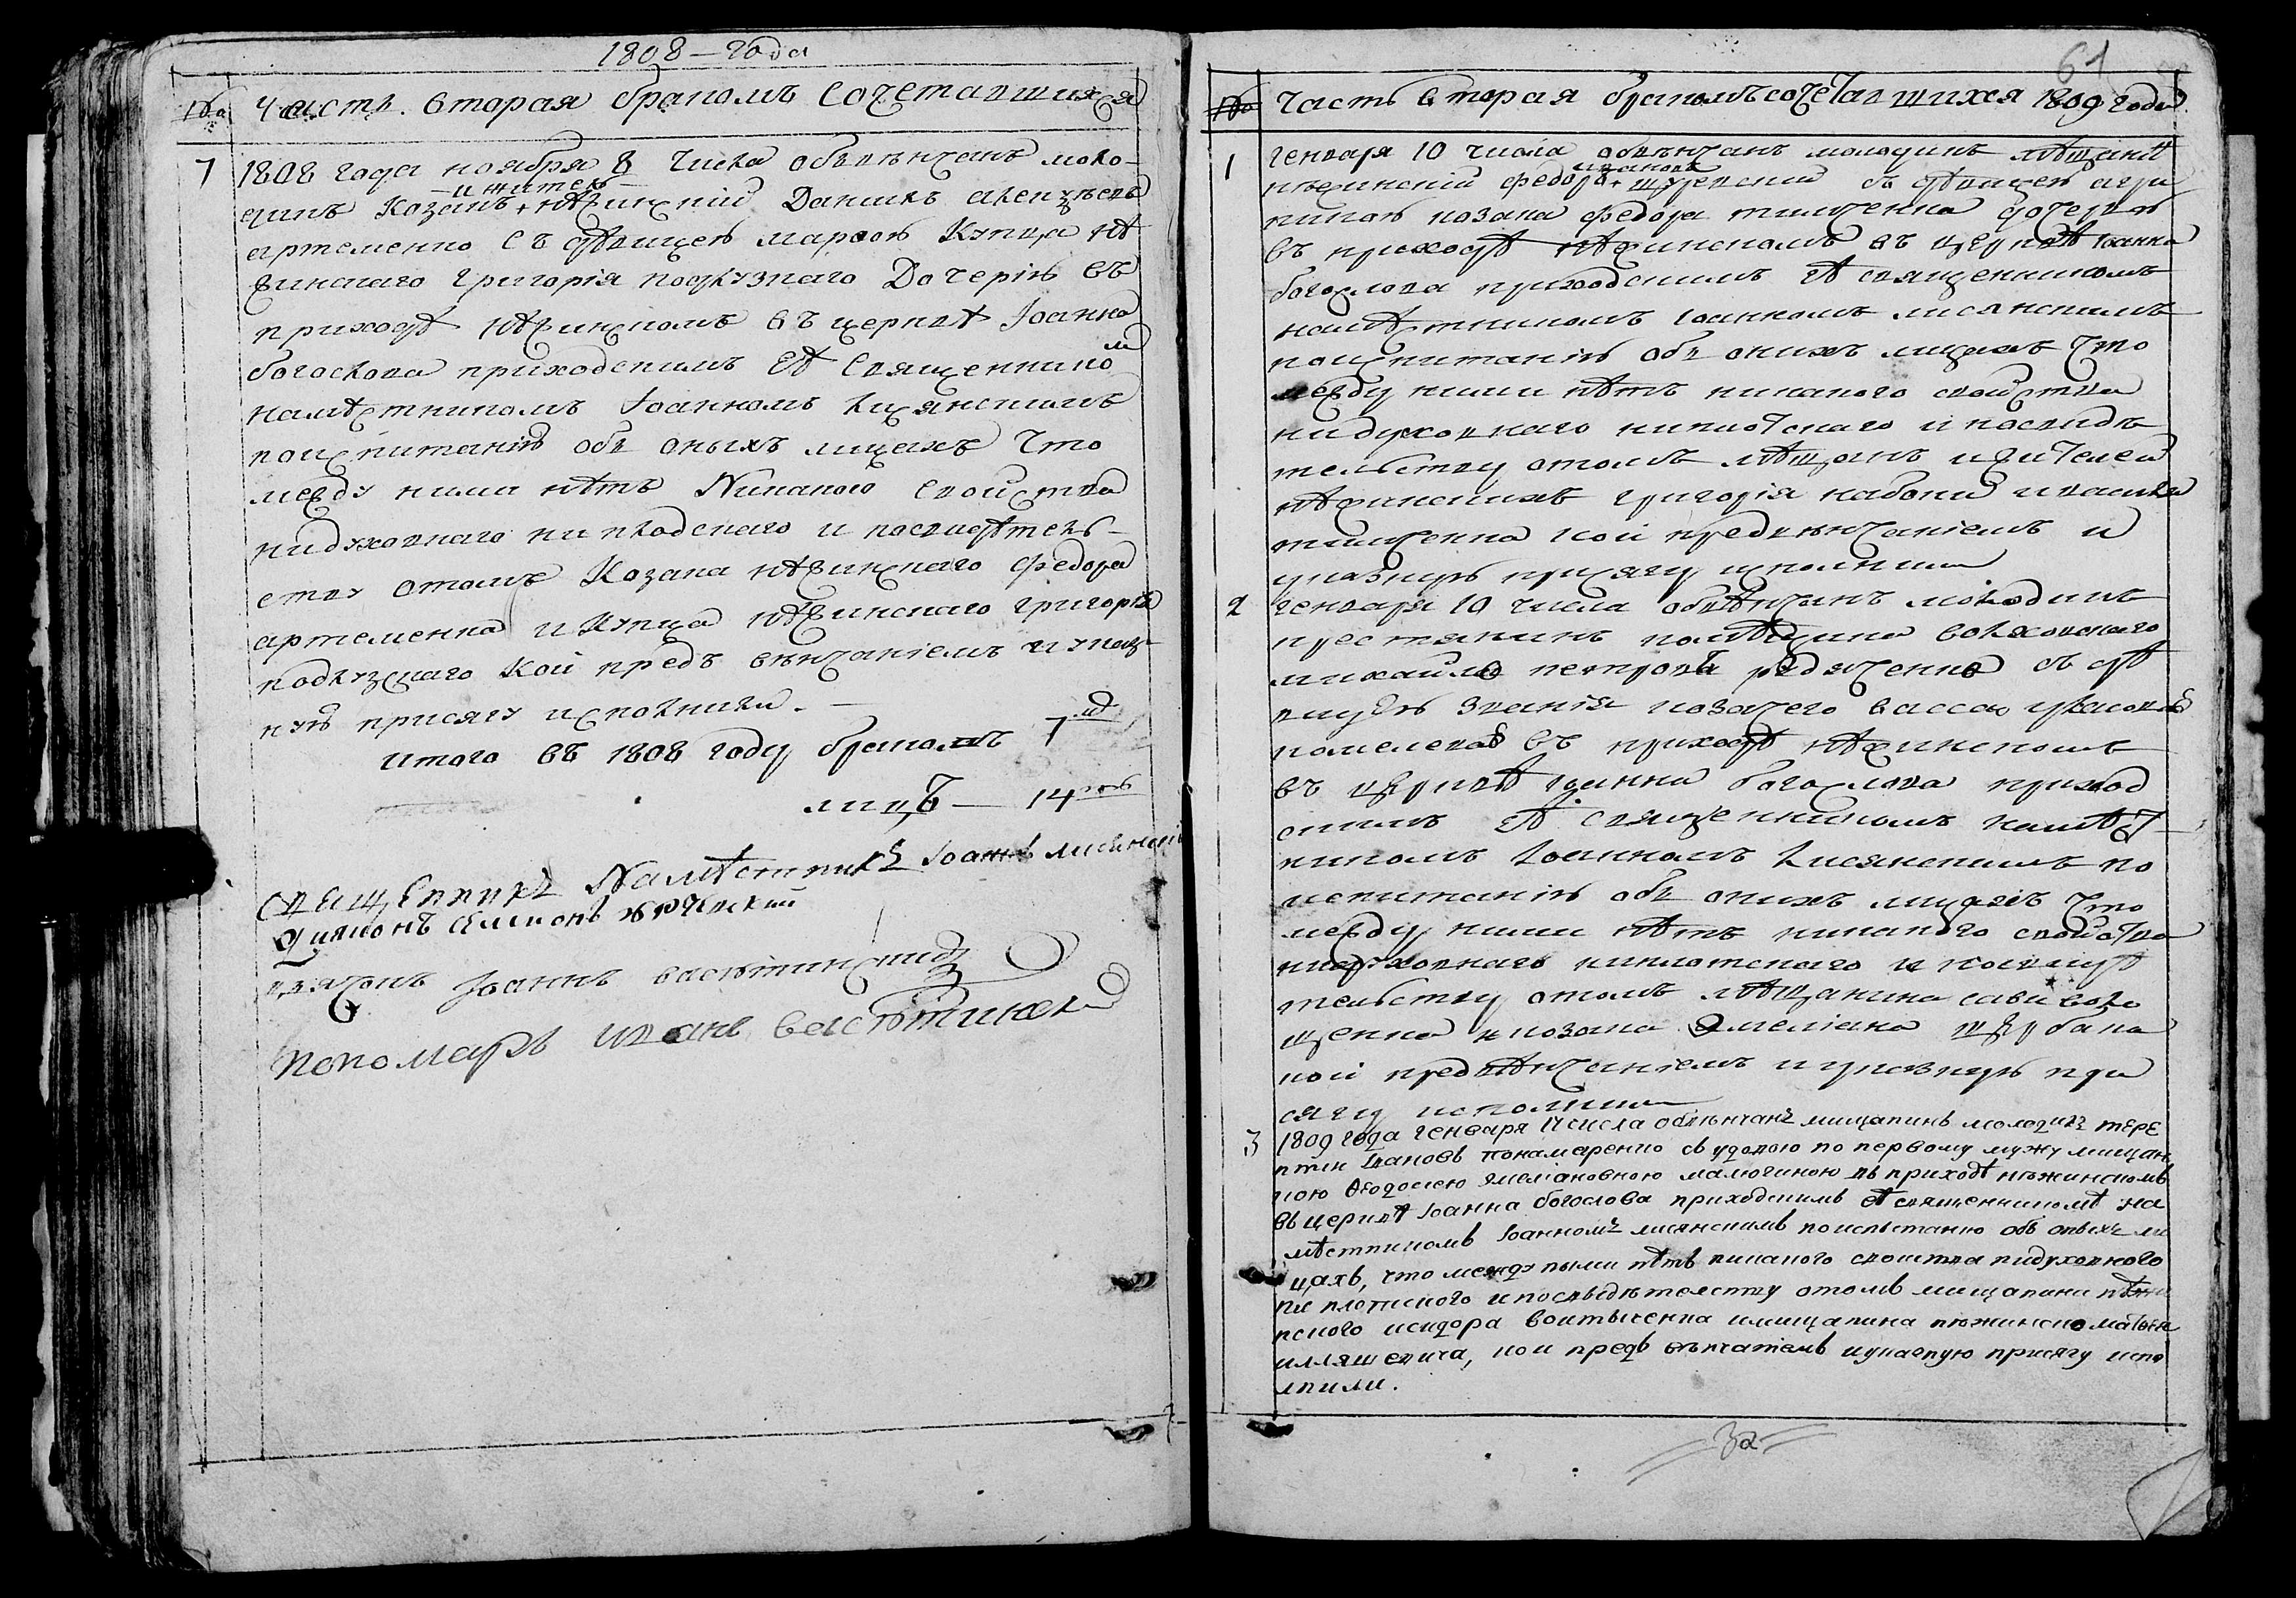 1808 – года
№ Часть вторая бракомъ сочетавшихся
7 1808 года ноября 8 числа обвѣнчанъ моло-
и житель
дикъ козакъ + нѣжинскій Данилъ алексѣевъ
артеменко съ дѣвицею марѳою купца нѣ
жинскаго григорія подкузнаго дочерію въ
приходѣ нѣжинскомъ въ церквѣ Іоанна
богослова приходскимъ еѣ священнико
м
намѣстникомъ Іоанномъ лисянскимъ
поиспитанію объ оныхъ лицахъ что
между ними нѣтъ никакого свойства
нидуховнаго ниплодскаго и посвидѣтель-
ству отомъ козака нѣжинскаго федора
артеменка и купца нѣжинскаго григорія
подкузнаго кои предъ вѣнчаніемъ и указ-
ную присягу исполнили. –
итого въ 1808 году браковъ 7
лицъ – 14
священникъ Намѣстникъ Іоаннъ лисянскій
дияконъ Симеонъ
дяконъ Іоаннъ
пономарь иванъ
61
№ Часть вторая бракомъ сочетавшихся 1809 года
1 генваря 10 числа обвѣнчанъ молодикъ мѣщанинъ
ивановъ
нѣжинскій федоръ + съ дѣвицею агри
пиною козака федора тимченка дочерью
въ приходѣ нѣжинскомъ въ церквѣ іоанна
богослова приходскимъ еѣ священникомъ
намѣстникомъ іоанномъ лисянскимъ
поиспитанію объ онихъ лицахъ что
между ними нѣтъ никакого свойства
нидуховнаго ниплотскаго и посвидѣ
тельству отомъ мѣщанъ и жителей
нѣжинскихъ григорія кабони и
тимченка кои предвѣнчаніемъ и
указную присягу исполнили
2 генваря 10 числа обвѣнчанъ молодикъ
крестянинъ помѣщика волховскаго
михайло петровъ радченко съ дѣ
вицею званія козачего вассою
въ приходѣ нѣжинскомъ
въ церквѣ іоанна богослова приход
скимъ еѣ священникомъ намѣст
никомъ Іоанномъ лисянскимъ по
испитанію объ онихъ лицахъ что
между ними нѣтъ никакого свойства
нидуховнаго ниплотскаго и посвидѣ
тельству отомъ мѣщанина сави воло
щенка и козака Омеліана щербака
кои предвѣнчаніемъ и указную при
сягу исполнили
3 1809 года генваря 17 числа обвѣнчанъ мищанинъ молодикъ тере
нтій Ивановъ понамаренко съ удовою по первому мужу мищан
кою Ѳеодосіею Эмеліановною малюгиною въ приходѣ нѣжинскомъ
въ церквѣ Іоанна богослова приходскимъ еѣ священникомъ на
мѣстникомъ Іоанномъ лисянскимъ поиспытанію объ оныхъ ли
цахъ, что между ными нѣтъ никакого свойства нидуховного
ни плотского и посвыдѣтельству отомъ мищанина нѣжи
нского исидора войтыченка имищанина нѣжинско матвея
илляшевича, кои предъ вѣнчаніемъ иуказную присягу испо
лнили.